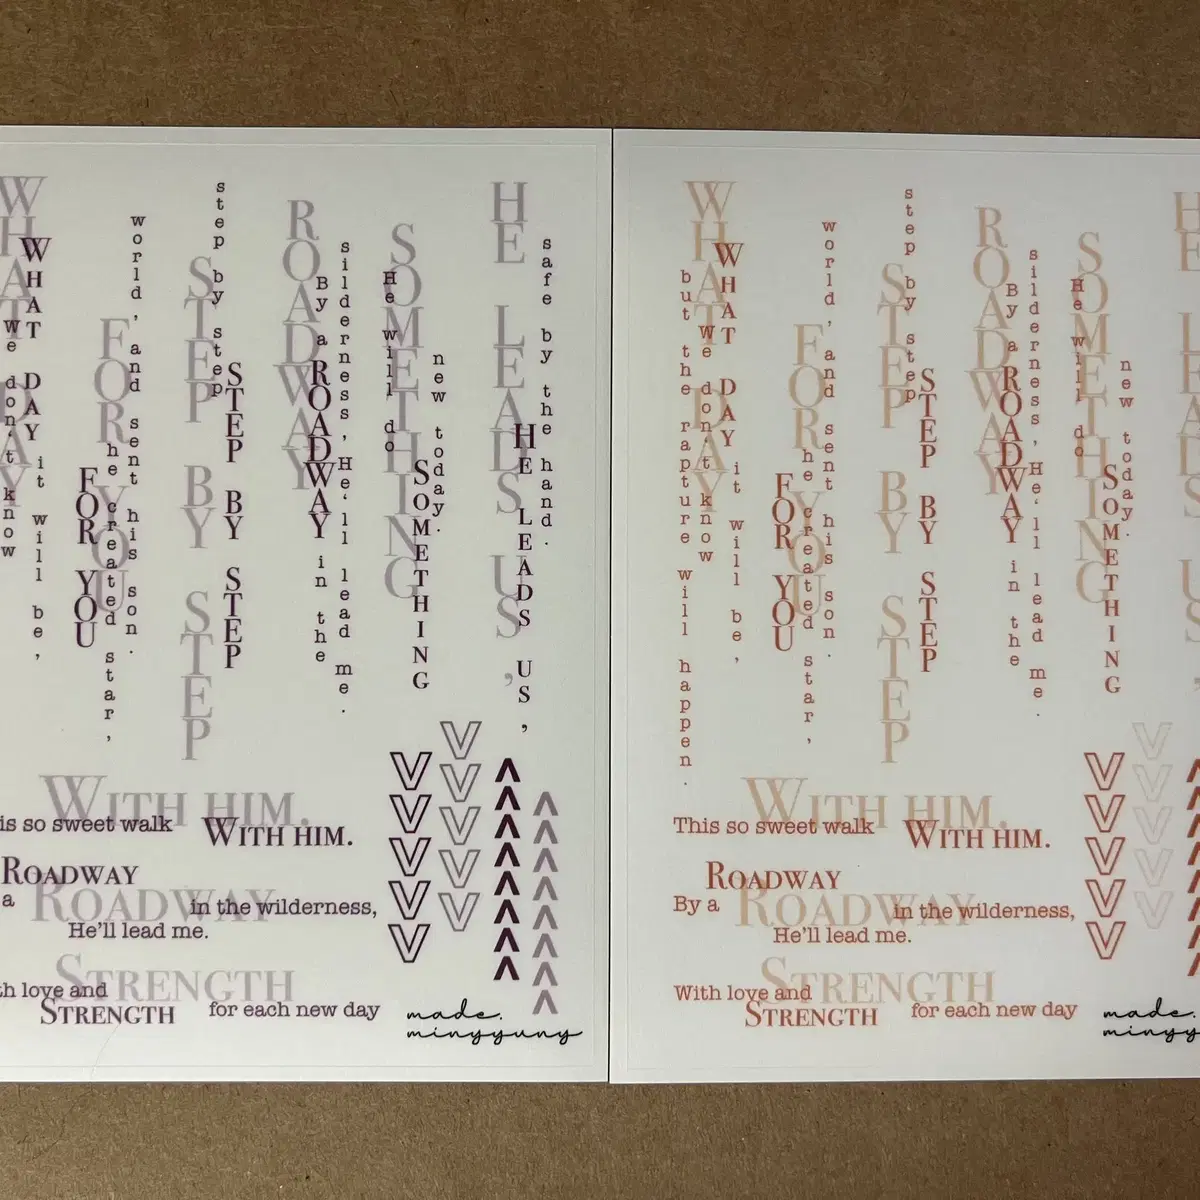 WHAT DAY
we don't know
WHAT DAY it will be,
FOR YOU
FOR YOU
he created star,
world, and sent his son.
STEP BY STEP
step by step
STEP BY STEP
ROADWAY
By a ROADWAY in the
silderness, He'll lead me.
SOMETHING
He will do
SOMETHING
new today.
HE LEADS US,
HE LEADS US,
safe by the hand.
WITH HIM.
is so sweet walk WITH HIM.
ROADWAY
a ROADWAY in the wilderness,
He'll lead me.
STRENGTH
th love and
STRENGTH for each new day
made.
minyyuny
but the rapture will happen.
WHAT DAY
we don't know
WHAT DAY it will be,
FOR YOU
FOR YOU
he created star,
world, and sent his son.
STEP BY STEP
step by step
STEP BY STEP
ROADWAY
By a ROADWAY in the
silderness, He'll lead me.
SOMETHING
He will do
SOMETHING
new today.
HE
US,
WITH HIM.
This so sweet walk WITH HIM.
ROADWAY
By a ROADWAY in the wilderness,
He'll lead me.
STRENGTH
With love and
STRENGTH for each new day
made.
minyy